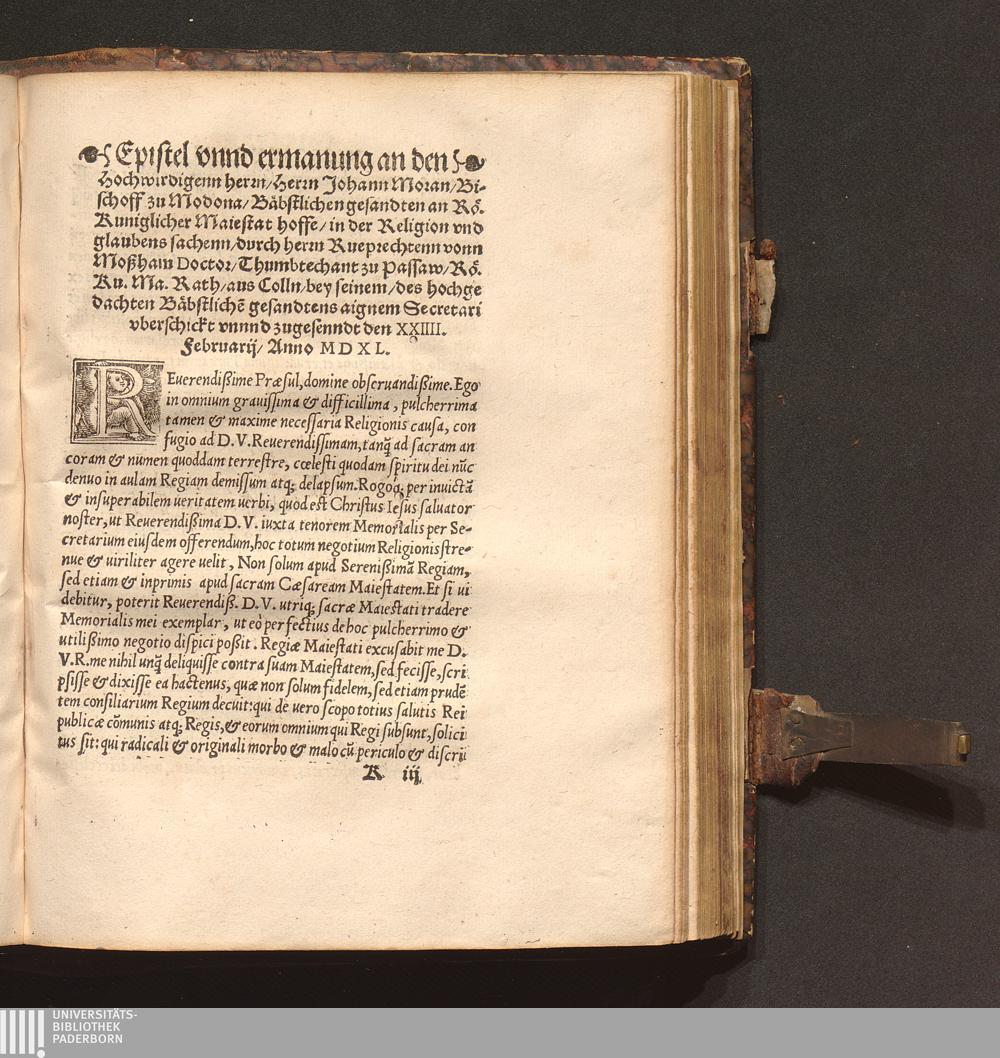 Epistel vnnd ermanung an den
Hochwirdigenn herrn/Herrn Johann Moran/Bi-
schoff zu Modona/Bäbstlichen gesandten an Rö.
Kuniglicher Maiestat hoffe/in der Religion vnd
glaubens sachenn/durch herrn Rueprechtenn vonn
Moßham Doctor/Thumbtechant zu Passaw/Rö.
Ku. Ma. Rath/aus Colln/bey seinem/des hochge
dachten Bäbstlichē gesandtens aignem Secretari
vberschickt vnnnd zugesenndt den XXIIII.
Februarij/Anno MDXL.
REuerendißime Præsul,domine obseruandißime.Ego
in omnium grauissima & difficillima, pulcherrima
tamen & maxime necessaria Religionis causa, con
fugio ad D.V.Reuerendissimam,tanq̃ ad sacram an
coram & numen quoddam terrestre, cœlesti quodam spiritu dei nūc
denuo in aulam Regiam demissum atq; delapsum.Rogoq́; per inuictã
& insuperabilem ueritatem uerbi, quod est Christus Iesus saluator
noster,ut Reuerendißima D.V. iuxta tenorem Memorialis per Se-
cretarium eiusdem offerendum,hoc totum negotium Religionis stre-
nue & uiriliter agere uelit, Non solum apud Serenißimã Regiam,
sed etiam & inprimis apud sacram Cæsaream Maiestatem.Et si ui
debitur, poterit Reuerendiß. D.V. utriq; sacræ Maiestati tradere
Memorialis mei exemplar, ut eò perfectius de hoc pulcherrimo &
utilißimo negotio dispici poßit. Regiæ Maiestati excusabit me D.
V.R.me nihil unq̃ deliquisse contra suam Maiestatem,sed fecisse,scri
psisse & dixisse ea hactenus, quæ non solum fidelem,sed etiam prudē
tem consiliarium Regium decuit:qui de uero scopo totius salutis Rei
publicæ cõmunis atq; Regis,& eorum omnium qui Regi subsunt,solici
tus sit: qui radicali & originali morbo & malo cũ periculo & discrii
K iij
UNIVERSITÄTS-
BIBLIOTHEK
PADERBORN